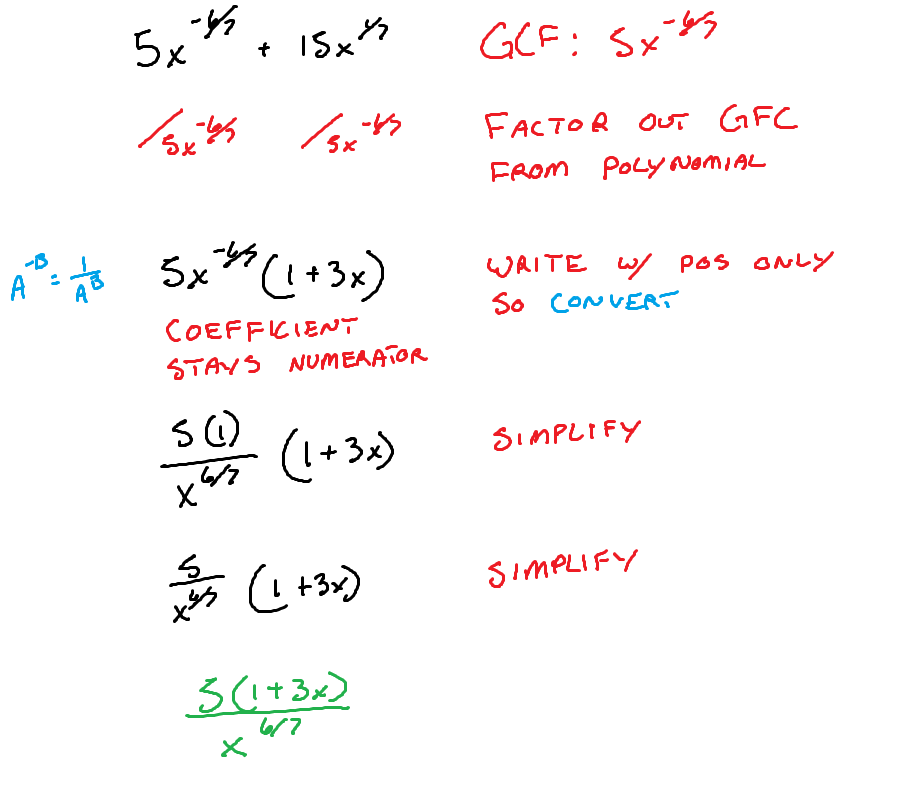 5x^(-6/7) + 15x^(1/7) GCF: 5x^(-6/7)
/5x^(-6/7) /5x^(-6/7) FACTOR OUT GFC
FROM POLYNOMIAL
A^(-B) = 1/A^B 5x^(-6/7)(1+3x) WRITE W/ POS ONLY
SO CONVERT
COEFFICIENT
STAYS NUMERATOR
5(1)/x^(6/7) (1+3x) SIMPLIFY
5/x^(6/7) (1+3x) SIMPLIFY
5(1+3x)/x^(6/7)